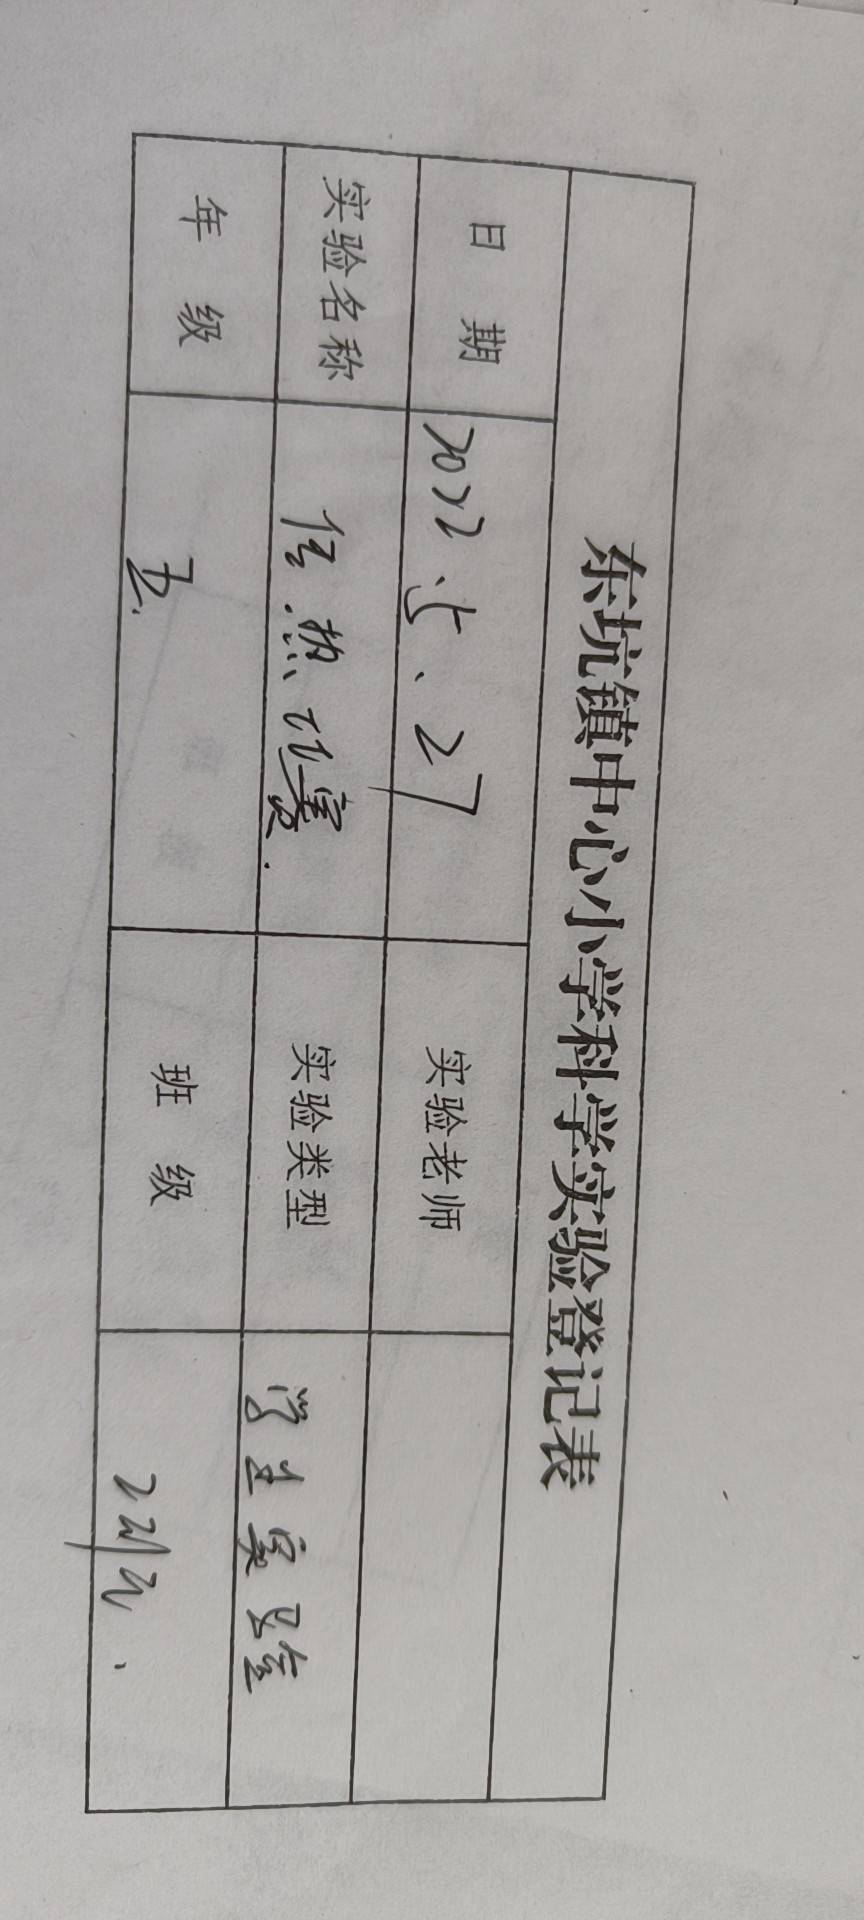 东坑镇中心小学科学实验登记表
日 期 2022.5.27 实验老师
实验名称 传热比赛 实验类型 学生实验
年 级 五 班 级